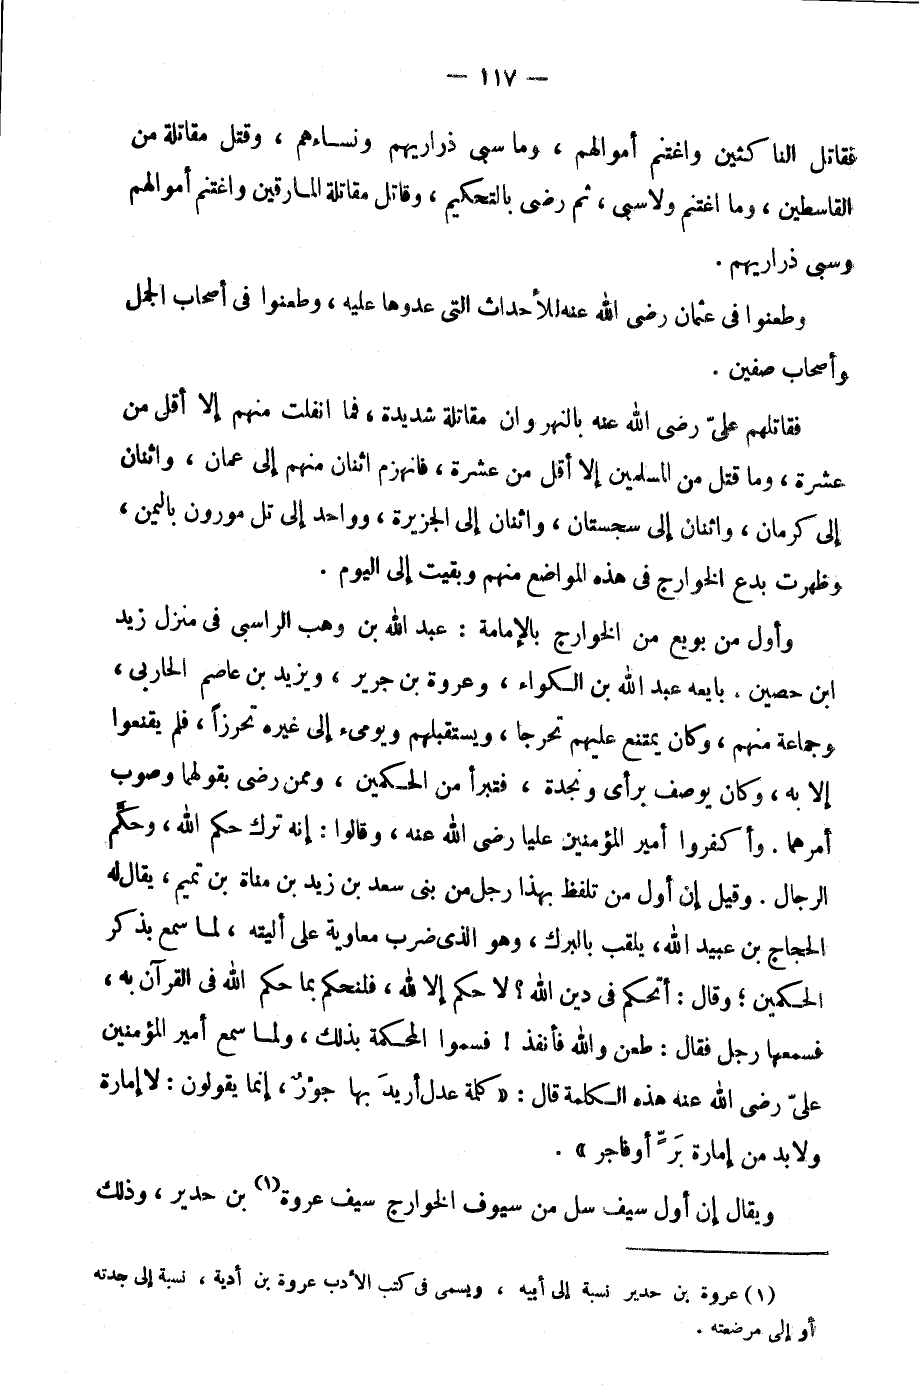 — ١١٧ —
فقاتل الناكثين واغتنم أموالهم ، وما سبى ذراريهم ونساءهم ، وقتل مقاتلة من
القاسطين ، وما اغتنم ولا سبى ، ثم رضى بالتحكيم ، وقاتل مقاتلة المارقين واغتنم أموالهم
وسبى ذراريهم .
وطعنوا فى عثمان رضى الله عنه للأحداث التى عدوها عليه ، وطعنوا فى أصحاب الجمل
وأصحاب صفين .
فقاتلهم علىّ رضى الله عنه بالنهروان مقاتلة شديدة ، فما انفلت منهم إلا أقل من
عشرة ، وما قتل من المسلمين إلا أقل من عشرة ، فانهزم اثنان منهم إلى عمان ، واثنان
إلى كرمان ، واثنان إلى سجستان ، واثنان إلى الجزيرة ، وواحد إلى تل مورون باليمن ،
وظهرت بدع الخوارج فى هذه المواضع منهم وبقيت إلى اليوم .
وأول من بويع من الخوارج بالإمامة : عبد الله بن وهب الراسبى فى منزل زيد
ابن حصين . بايعه عبد الله بن الكواء ، وعروة بن جرير ، ويزيد بن عاصم المحاربى ،
وجماعة منهم ، وكان يمتنع عليهم تحرجا ، ويستقبلهم ويومىء إلى غيره تحرزاً ، فلم يقنعوا
إلا به ، وكان يوصف برأى ونجدة ، فتبرأ من الحكمين ، وممن رضى بقولهما وصوب
أمرهما . وأكفروا أمير المؤمنين عليا رضى الله عنه ، وقالوا : إنه ترك حكم الله ، وحكَّم
الرجال . وقيل إن أول من تلفظ بهذا رجل من بنى سعد بن زيد بن مناة بن تميم ، يقال له
الحجاج بن عبيد الله ، يلقب بالبرك ، وهو الذى ضرب معاوية على أليته ، لما سمع بذكر
الحكمين ؛ وقال : أتحكم فى دين الله ؟ لا حكم إلا لله ، فلنحكم بما حكم الله فى القرآن به ،
فسمعها رجل فقال : طعن والله فأنفذ ! فسموا المحكمة بذلك ، ولما سمع أمير المؤمنين
علىّ رضى الله عنه هذه الكلمة قال : « كلمة عدل أريدَ بها جوْرٌ ، إنما يقولون : لا إمارة
ولا بد من إمارة بَرٍّ أو فاجر » .
ويقال إن أول سيف سل من سيوف الخوارج سيف عروة(١) بن حدير ، وذلك
(١) عروة بن حدير نسبة إلى أبيه ، ويسمى فى كتب الأدب عروة بن أدية ، نسبة إلى جدته
أو إلى مرضعته .